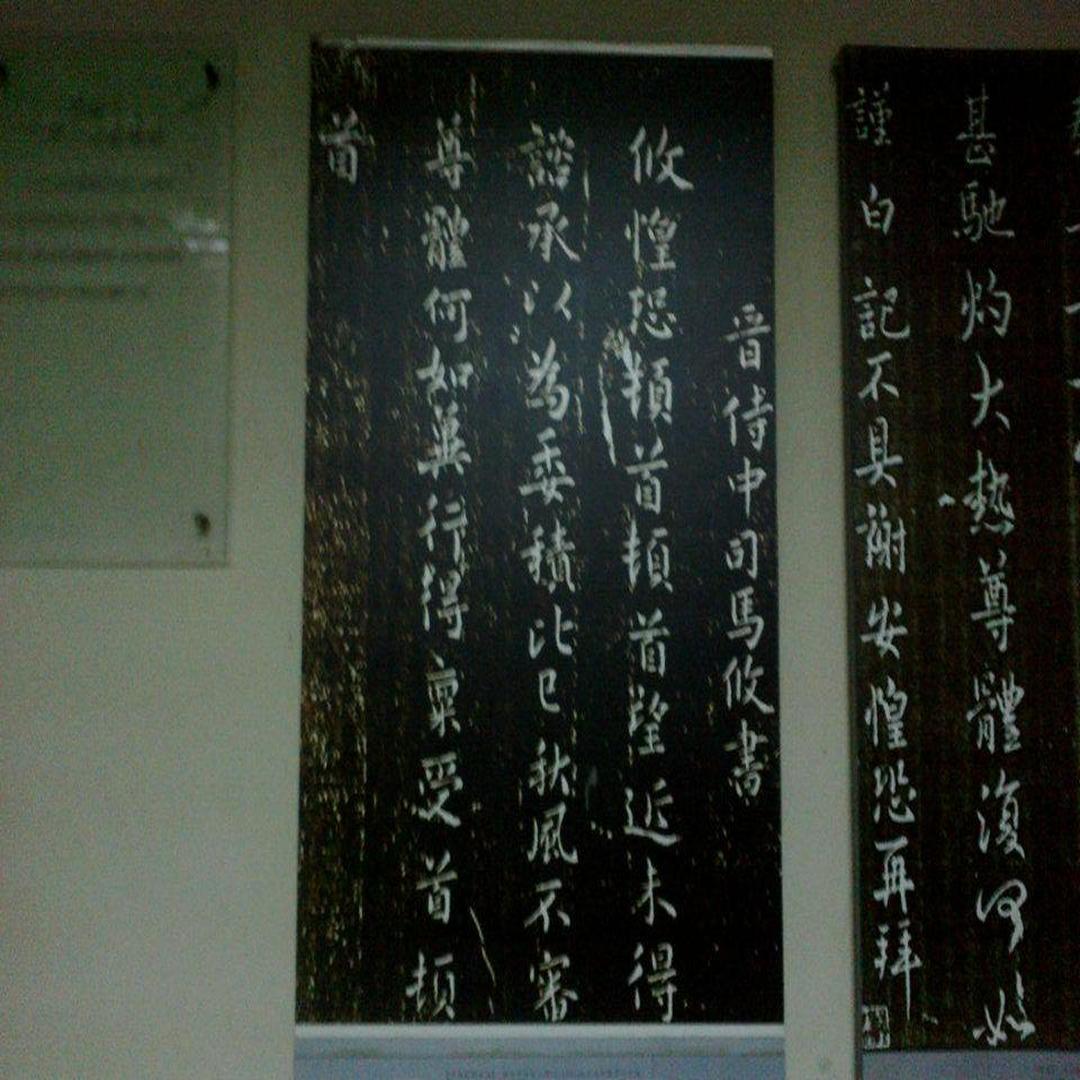 甚馳灼大熱尊體復何如
謹白記不具謝安惶恐再拜
晉侍中司馬攸書
攸惶恐頓首頓首望近未得
諮承以為委積比已秋風不審
尊體何如冀行得稟受首頓
首